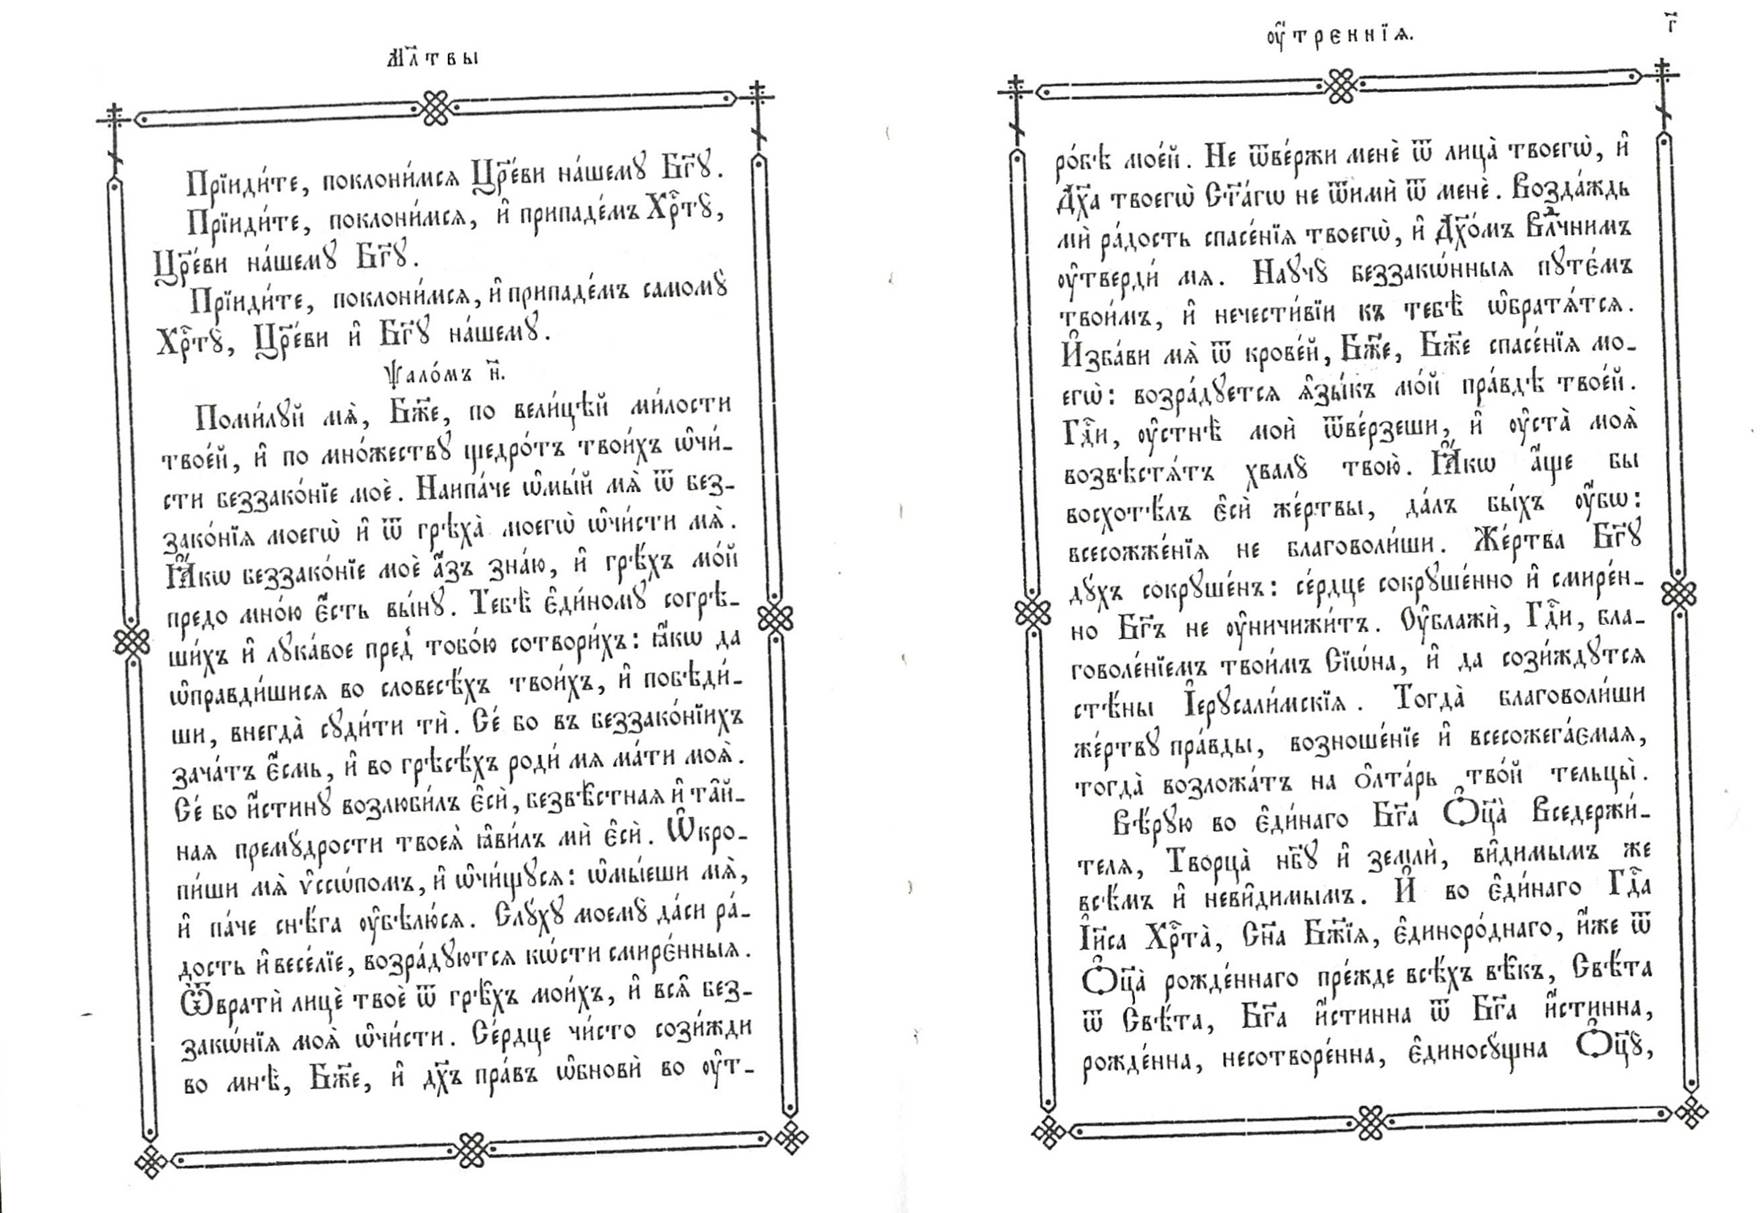 Мл҃твы
Прїиди́те, поклони́мсѧ Цр҃е́ви на́шемꙋ Бг҃ꙋ.
Прїиди́те, поклони́мсѧ, и҆ припаде́мъ Хрⷭ҇тꙋ̀,
Цр҃е́ви на́шемꙋ Бг҃ꙋ.
Прїиди́те, поклони́мсѧ, и҆ припаде́мъ самомꙋ̀
Хрⷭ҇тꙋ̀, Цр҃е́ви и҆ Бг҃ꙋ на́шемꙋ.
Ѱало́мъ н҃.
Поми́лꙋй мѧ̀, Бж҃е, по вели́цѣй ми́лости
твое́й, и҆ по мно́жествꙋ щедро́тъ твои́хъ ѡ҆чи́-
сти беззако́нїе моѐ. Наипа́че ѡ҆мы́й мѧ̀ ѿ без-
зако́нїѧ моегѡ̀ и҆ ѿ грѣха̀ моегѡ̀ ѡ҆чи́сти мѧ̀.
Ꙗ҆́кѡ беззако́нїе моѐ а҆́зъ зна́ю, и҆ грѣ́хъ мо́й
предо мно́ю є҆́сть вы́нꙋ. Тебѣ̀ є҆ди́номꙋ согрѣ-
ши́хъ и҆ лꙋка́вое пред̾ тобо́ю сотвори́хъ: ꙗ҆́кѡ да
ѡ҆правди́шисѧ во словесѣ́хъ твои́хъ, и҆ побѣди́-
ши, внегда̀ сꙋди́ти тѝ. Се́ бо въ беззако́нїихъ
зача́тъ є҆́смь, и҆ во грѣсѣ́хъ роди́ мѧ ма́ти моѧ̀.
Се́ бо и҆́стинꙋ возлюби́лъ є҆сѝ, безвѣ̑стнаѧ и҆ та̑й-
наѧ премꙋ́дрости твоеѧ̀ ꙗ҆ви́лъ мѝ є҆сѝ. Ѡ҆кро-
пи́ши мѧ̀ ѵ҆ссѡ́помъ, и҆ ѡ҆чи́щꙋсѧ: ѡ҆мы́еши мѧ̀,
и҆ па́че снѣ́га ᲂу҆бѣлю́сѧ. Слꙋ́хꙋ моемꙋ̀ да́си ра́-
дость и҆ весе́лїе, возра́дꙋютсѧ кѡ́сти смире́нныѧ.
Ѿвратѝ лицѐ твоѐ ѿ грѣ̑хъ мои́хъ, и҆ всѧ̑ без-
закѡ́нїѧ моѧ̑ ѡ҆чи́сти. Се́рдце чи́сто сози́жди
во мнѣ̀, Бж҃е, и҆ дх҃ъ пра́въ ѡ҆бновѝ во ᲂу҆т-
ᲂу҆́треннїѧ.
г҃
ро́бѣ мое́й. Не ѿве́ржи менѐ ѿ лица̀ твоегѡ̀, и҆
Дх҃а твоегѡ̀ Ст҃а́гѡ не ѿимѝ ѿ менѐ. Возда́ждь
мѝ ра́дость спасе́нїѧ твоегѡ̀, и҆ Дх҃о́мъ Влⷣчнимъ
ᲂу҆твердѝ мѧ. Наꙋчꙋ̀ беззакѡ́нныѧ пꙋте́мъ
твои́мъ, и҆ нечести́вїи къ тебѣ̀ ѡ҆братѧ́тсѧ.
И҆зба́ви мѧ̀ ѿ крове́й, Бж҃е, Бж҃е спасе́нїѧ мо-
егѡ̀: возра́дꙋетсѧ ѧ҆зы́къ мо́й пра́вдѣ твое́й.
Гдⷭ҇и, ᲂу҆стнѣ̀ мои̑ ѿве́рзеши, и҆ ᲂу҆ста̀ моѧ̑
возвѣстѧ́тъ хвалꙋ̀ твою̀. Ꙗ҆́кѡ а҆́ще бы
восхотѣ́лъ є҆сѝ же́ртвы, да́лъ бы́хъ ᲂу҆́бѡ:
всесожже́нїѧ не благоволи́ши. Же́ртва Бг҃ꙋ
дꙋ́хъ сокрꙋше́нъ: се́рдце сокрꙋше́нно и҆ смире́н-
но Бг҃ъ не ᲂу҆ничижи́тъ. Оу҆блажѝ, Гдⷭ҇и, бла-
говоле́нїемъ твои́мъ Сїѡ́на, и҆ да сози́ждꙋтсѧ
стѣ́ны І҆ерꙋсали́мскїѧ. Тогда̀ благоволи́ши
же́ртвꙋ пра́вды, возноше́нїе и҆ всесожега́ємаѧ,
тогда̀ возложа́тъ на ѻ҆лта́рь тво́й тельцы̀.
Вѣ́рꙋю во є҆ди́наго Бг҃а Ѻ҆ц҃а̀ Вседержи́-
телѧ, Творца̀ нб҃ꙋ и҆ землѝ, ви̑димымъ же
всѣ̑мъ и҆ неви̑димымъ. И҆ во є҆ди́наго Гдⷭ҇а
І҆и҃са Хрⷭ҇та̀, Сн҃а Бж҃їѧ, є҆диноро́днаго, и҆́же ѿ
Ѻ҆ц҃а̀ рожде́ннаго пре́жде всѣ́хъ вѣ̑къ, Свѣ́та
ѿ Свѣ́та, Бг҃а и҆́стинна ѿ Бг҃а и҆́стинна,
рожде́нна, несотворе́нна, є҆диносꙋ́щна Ѻ҆ц҃ꙋ̀,